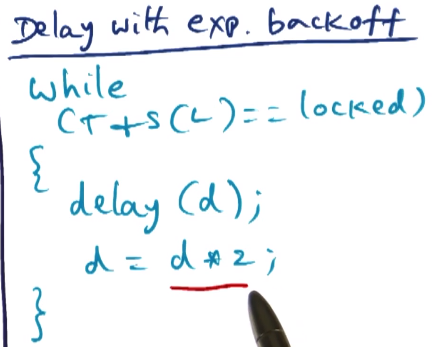 Delay with exp. backoff
while
(T+S(L)==locked)
{
delay (d);
d = d*2;
}